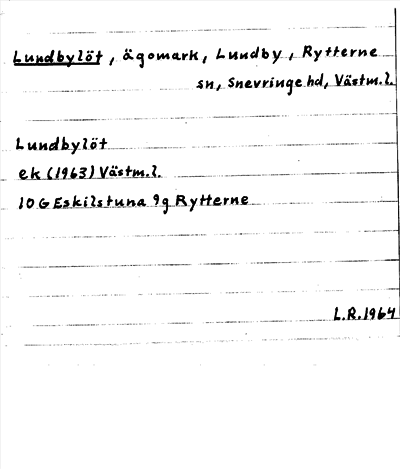 Lundbylöt, ägomark, Lundby, Rytterne
sn, Snevringe hd, Västm.l.
Lundbylöt
ek (1963) Västm.l.
10 G Eskilstuna 9g Rytterne
L.R. 1964